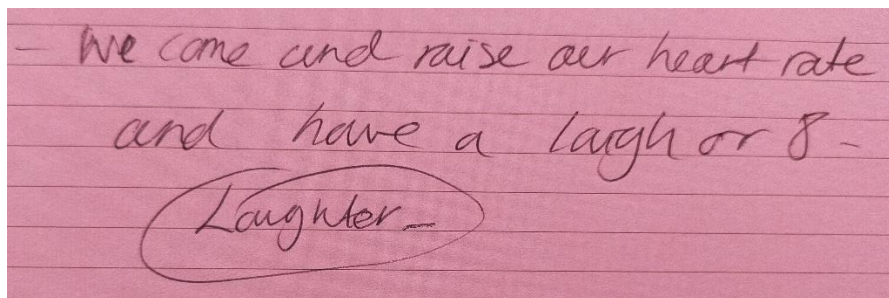 - We come and raise our heart rate
and have a laugh or 8 -
Laughter -